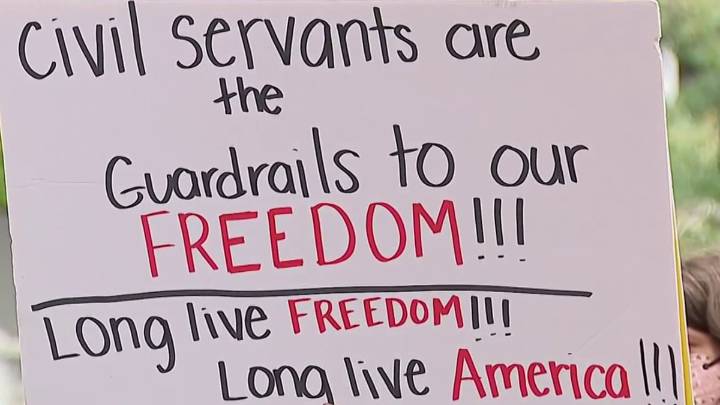 Civil servants are
the
Guardrails to our
FREEDOM!!!
Long live FREEDOM!!!
Long live America!!!